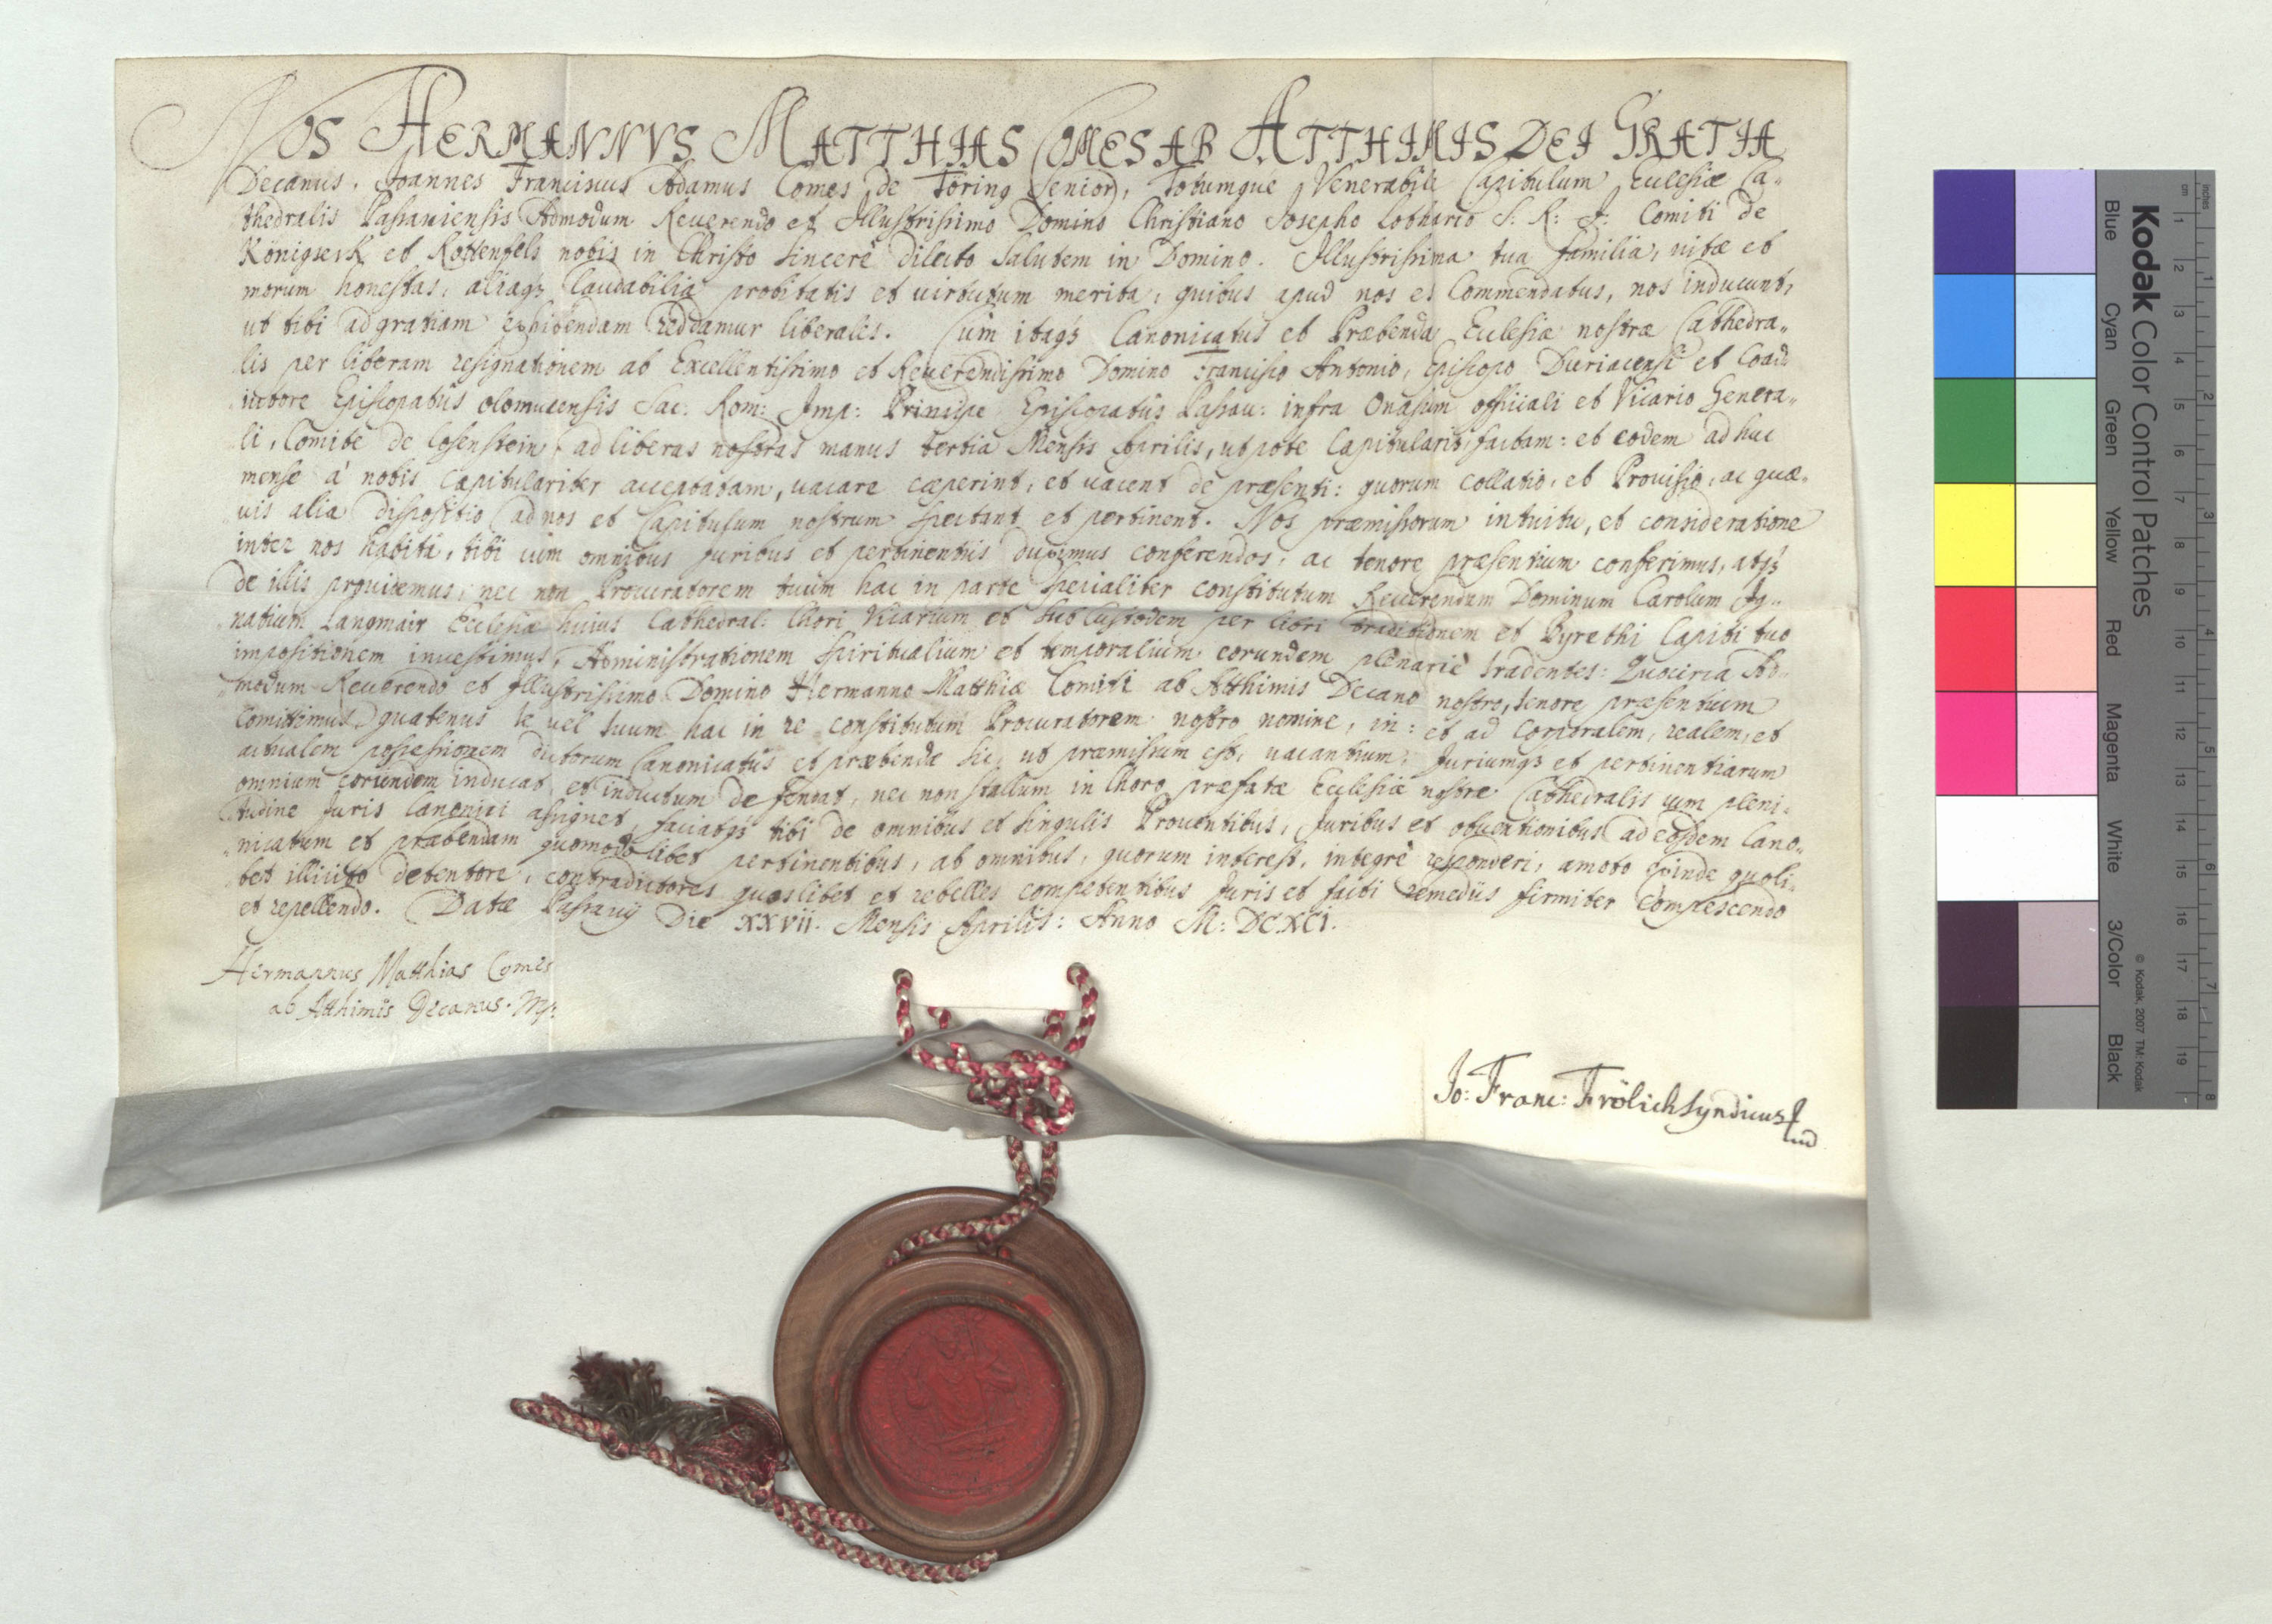 NOS HERMANNVS MATTHIAS COMES AB ATTHIMIS DEI GRATIA
Decanus, Joannes Franciscus Adamus Comes de Töring Senior, Totumque Venerabile Capitulum Ecclesiæ Ca-
thedralis Passauiensis Admodum Reuerendo et Illustrissimo Domino Christiano Josepho Lothario S: R: J: Comiti de
Königseck et Rottenfels nobis in Christo sincerè dilecto Salutem in Domino. Illustrissima tua familia, uitæ et
morum honestas, aliaq3 laudabilia probitatis et uirtutum merita, quibus apud nos es Commendatus, nos inducunt,
ut tibi ad gratiam exhibendam reddamur liberales. Cùm itaq3 Canonicatus et Præbenda Ecclesiæ nostræ Cathedra-
lis per liberam resignationem ab Excellentissimo et Reuerendissimo Domino Francisco Antonio, Episcopo Duriacensi et Coad-
iutore Episcopatûs olomucensis Sac: Rom: Imp: Principe Episcopatûs Passau: infra Onasum officiali et Vicario Genera-
li, Comite de Losenstein, ad liberas nostras manus tertia Mensis Aprilis, utpote Capitularis, factam: et eodem adhuc
mense à nobis Capitulariter acceptatam, uacare cæperint, et uacent de præsenti: quorum collatio, et Prouisio, ac quæ-
uis alia dispositio ad nos et Capitulum nostrum spectant et pertinent. Nos præmissorum intuitu, et consideratione
inter nos habitâ, tibi cum omnibus juribus et pertinentiis duximus conferendos, ac tenore præsentium conferimus, atq3
de illis prouidemus, nec non Procuratorem tuum hac in parte specialiter constitutum Reuerendum Dominum Carolum Ig-
natium Langmair Ecclesiæ huius Cathedral: Chori Vicarium et SubCustodem per libri traditionem et Pyrethi Capiti tuo
impositionem inuestimus, Administrationem spiritualium et temporalium eorundem plenariè tradentes: Quocirca Ad-
modum Reuerendo et Illustrissimo Domino Hermanno Matthiæ Comiti ab Atthimis Decano nostro, tenore præsentium
Comittimus, quatenus te uel tuum hac in re constitutum Procuratorem nostro nomine, in: et ad corporalem, realem, et
actualem possessionem dictorum Canonicatûs et præbendæ sic, ut præmissum est, uacantium, Juriumq3 et pertinentiarum
omnium eorundem inducat, et inductum defendat, nec non stallum in Choro præfatæ Ecclesiæ nostræ Cathedralis cum pleni-
tudine Juris Canonici assignet, faciatq3 tibi de omnibus et singulis Prouentibus, Juribus et obuentionibus ad eosdem Cano-
nicatum et præbendam quomodolibet pertinentibus, ab omnibus, quorum interest, integrè responderi, amoto exinde quoli-
bet illicito detentore, contradictores quoslibet et rebelles competentibus Juris et facti remediis firmiter compescendo
et repellendo. Datæ Passauij Die XXVII. Mensis Aprilis: Anno M: DCXCI.
Hermannus Matthias Comes
ab Atthimis Decanus. Mp:
Jo: Franc: Frölich Syndicus
Kodak Color Control Patches
Blue Cyan Green Yellow Red Magenta White 3/Color Black
© Kodak, 2007 TM: Kodak
cm 1 2 3 4 5 6 7 8 9 10 11 12 13 14 15 16 17 18 19
inches 1 2 3 4 5 6 7 8